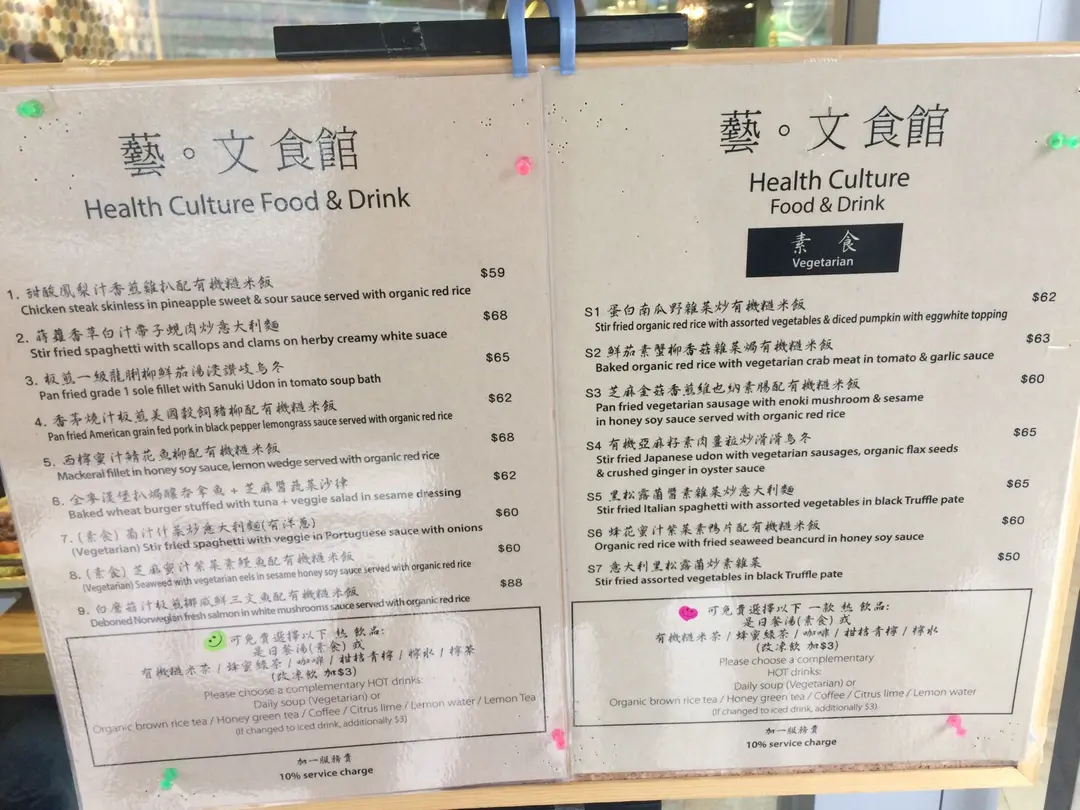 藝。文食館
Health Culture Food & Drink
1. 甜酸鳳梨汁香煎雞扒配有機糙米飯 $59
Chicken steak skinless in pineapple sweet & sour sauce served with organic red rice
2. 蒔蘿香草白汁帶子蜆肉炒意大利麵 $68
Stir fried spaghetti with scallops and clams on herby creamy white suace
3. 板煎一級龍脷柳鮮茄湯浸讚岐烏冬 $65
Pan fried grade 1 sole fillet with Sanuki Udon in tomato soup bath
4. 香茅燒汁板煎美國穀飼豬柳配有機糙米飯 $62
Pan fried American grain fed pork in black pepper lemongrass sauce served with organic red rice
5. 西檸蜜汁鯖花魚柳配有機糙米飯 $68
Mackeral fillet in honey soy sauce, lemon wedge served with organic red rice
6. 全麥漢堡扒焗釀吞拿魚 + 芝麻醬蔬菜沙律 $62
Baked wheat burger stuffed with tuna + veggie salad in sesame dressing
7. (素食) 葡汁什菜炒意大利麵(有洋蔥) $60
(Vegetarian) Stir fried spaghetti with veggie in Portuguese sauce with onions
8. (素食) 芝麻蜜汁紫菜素鰻魚配有機糙米飯 $60
(Vegetarian) Seaweed with vegetarian eels in sesame honey soy sauce served with organic red rice
9. 白蘑菇汁板煎挪威鮮三文魚配有機糙米飯 $88
Deboned Norwegian fresh salmon in white mushrooms sauce served with organic red rice
可免費選擇以下 熱 飲品:
是日餐湯(素食) 或
有機糙米茶 / 蜂蜜綠茶 / 咖啡 / 柑桔青檸 / 檸水 / 檸茶
(改凍飲 加$3)
Please choose a complementary HOT drinks:
Daily soup (Vegetarian) or
Organic brown rice tea / Honey green tea / Coffee / Citrus lime / Lemon water / Lemon Tea
(If changed to iced drink, additionally $3)
加一服務費
10% service charge
藝。文食館
Health Culture
Food & Drink
素 食
Vegetarian
S1 蛋白南瓜野雜菜炒有機糙米飯 $62
Stir fried organic red rice with assorted vegetables & diced pumpkin with eggwhite topping
S2 鮮茄素蟹柳香菇雜菜焗有機糙米飯 $63
Baked organic red rice with vegetarian crab meat in tomato & garlic sauce
S3 芝麻金菇香煎維也納素腸配有機糙米飯 $60
Pan fried vegetarian sausage with enoki mushroom & sesame
in honey soy sauce served with organic red rice
S4 有機亞麻籽素肉薑粒炒滑滑烏冬 $65
Stir fried Japanese udon with vegetarian sausages, organic flax seeds
& crushed ginger in oyster sauce
S5 黑松露菌醬素雜菜炒意大利麵 $65
Stir fried Italian spaghetti with assorted vegetables in black Truffle pate
S6 蜂花蜜汁紫菜素鴨片配有機糙米飯 $60
Organic red rice with fried seaweed beancurd in honey soy sauce
S7 意大利黑松露菌炒素雜菜 $50
Stir fried assorted vegetables in black Truffle pate
可免費選擇以下 一款 熱 飲品:
是日餐湯(素食) 或
有機糙米茶 / 蜂蜜綠茶 / 咖啡 / 柑桔青檸 / 檸水
(改凍飲 加$3)
Please choose a complementary
HOT drinks:
Daily soup (Vegetarian) or
Organic brown rice tea / Honey green tea / Coffee / Citrus lime / Lemon water
(If changed to iced drink, additionally $3)
加一服務費
10% service charge